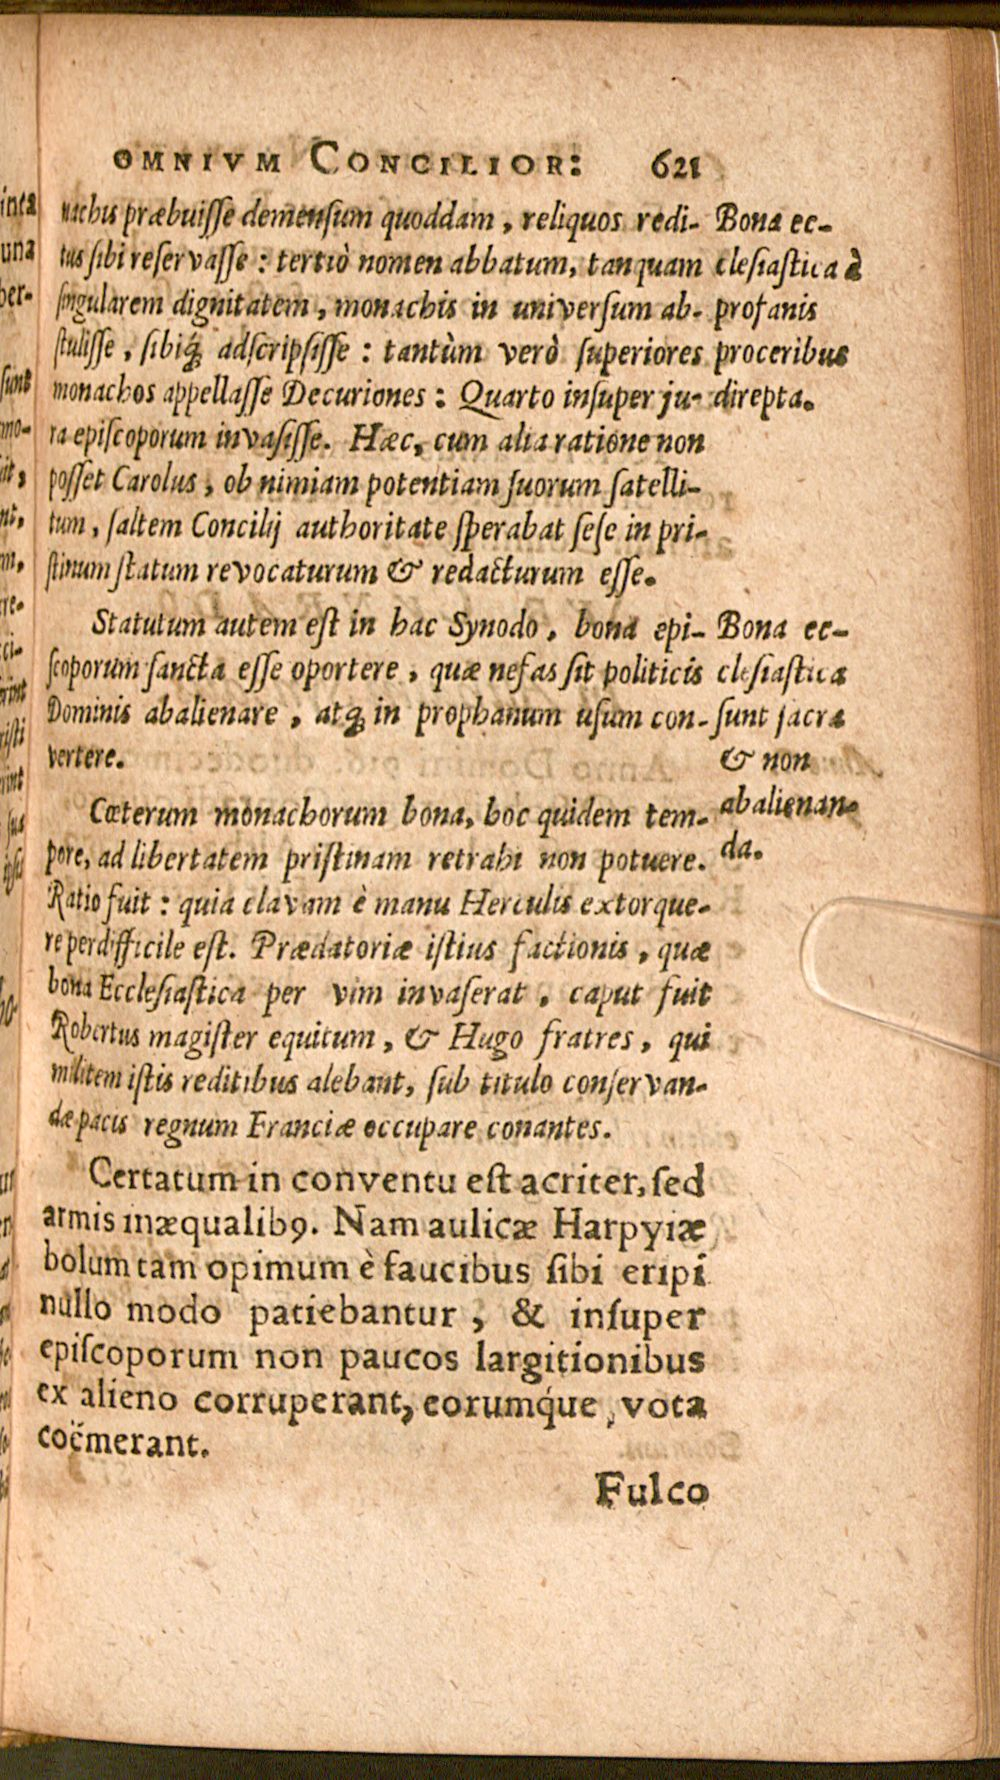 OMNIVM CONCILIOR: 621
nachis præbuiſſe demenſum quoddam, reliquos redi-
tus ſibi reſervaſſe: tertiò nomen abbatum, tanquam
ſingularem dignitatem, monachis in univerſum ab-
ſtuliſſe, ſibiq́ꝫ adſcripſiſſe: tantùm verò ſuperiores
monachos appellaſſe Decuriones: Quarto inſuper ju-
ra epiſcoporum invaſiſſe. Hæc, cum alia ratione non
poſſet Carolus, ob nimiam potentiam ſuorum ſatelli-
tum, ſaltem Concilij authoritate ſperabat ſeſe in pri-
ſtinum ſtatum revocaturum & redacturum eſſe.
Bona ec-
cleſiaſtica à
profanis
proceribus
direpta.
Statutum autem eſt in hac Synodo, bona epi-
ſcoporum ſancta eſſe oportere, quæ nefas ſit politicis
Dominis abalienare, atqꝫ in prophanum uſum con-
vertere.
Bona ec-
cleſiaſtica
ſunt ſacra
& non
abalienan-
da.
Cæterum monachorum bona, hoc quidem tem-
pore, ad libertatem priſtinam retrahi non potuere.
Ratio fuit: quia clavam è manu Herculis extorque-
re perdifficile eſt. Prædatoriæ iſtius factionis, quæ
bona Eccleſiaſtica per vim invaſerat, caput fuit
Robertus magiſter equitum, & Hugo fratres, qui
militem iſtis reditibus alebant, ſub titulo conſervan-
dæ pacis regnum Franciæ occupare conantes.
Certatum in conventu eſt acriter, ſed
armis inæqualibꝯ. Nam aulicæ Harpyiæ
bolum tam opimum è faucibus ſibi eripi
nullo modo patiebantur, & inſuper
epiſcoporum non paucos largitionibus
ex alieno corruperant, eorumq́ue, vota
coëmerant.
Fulco